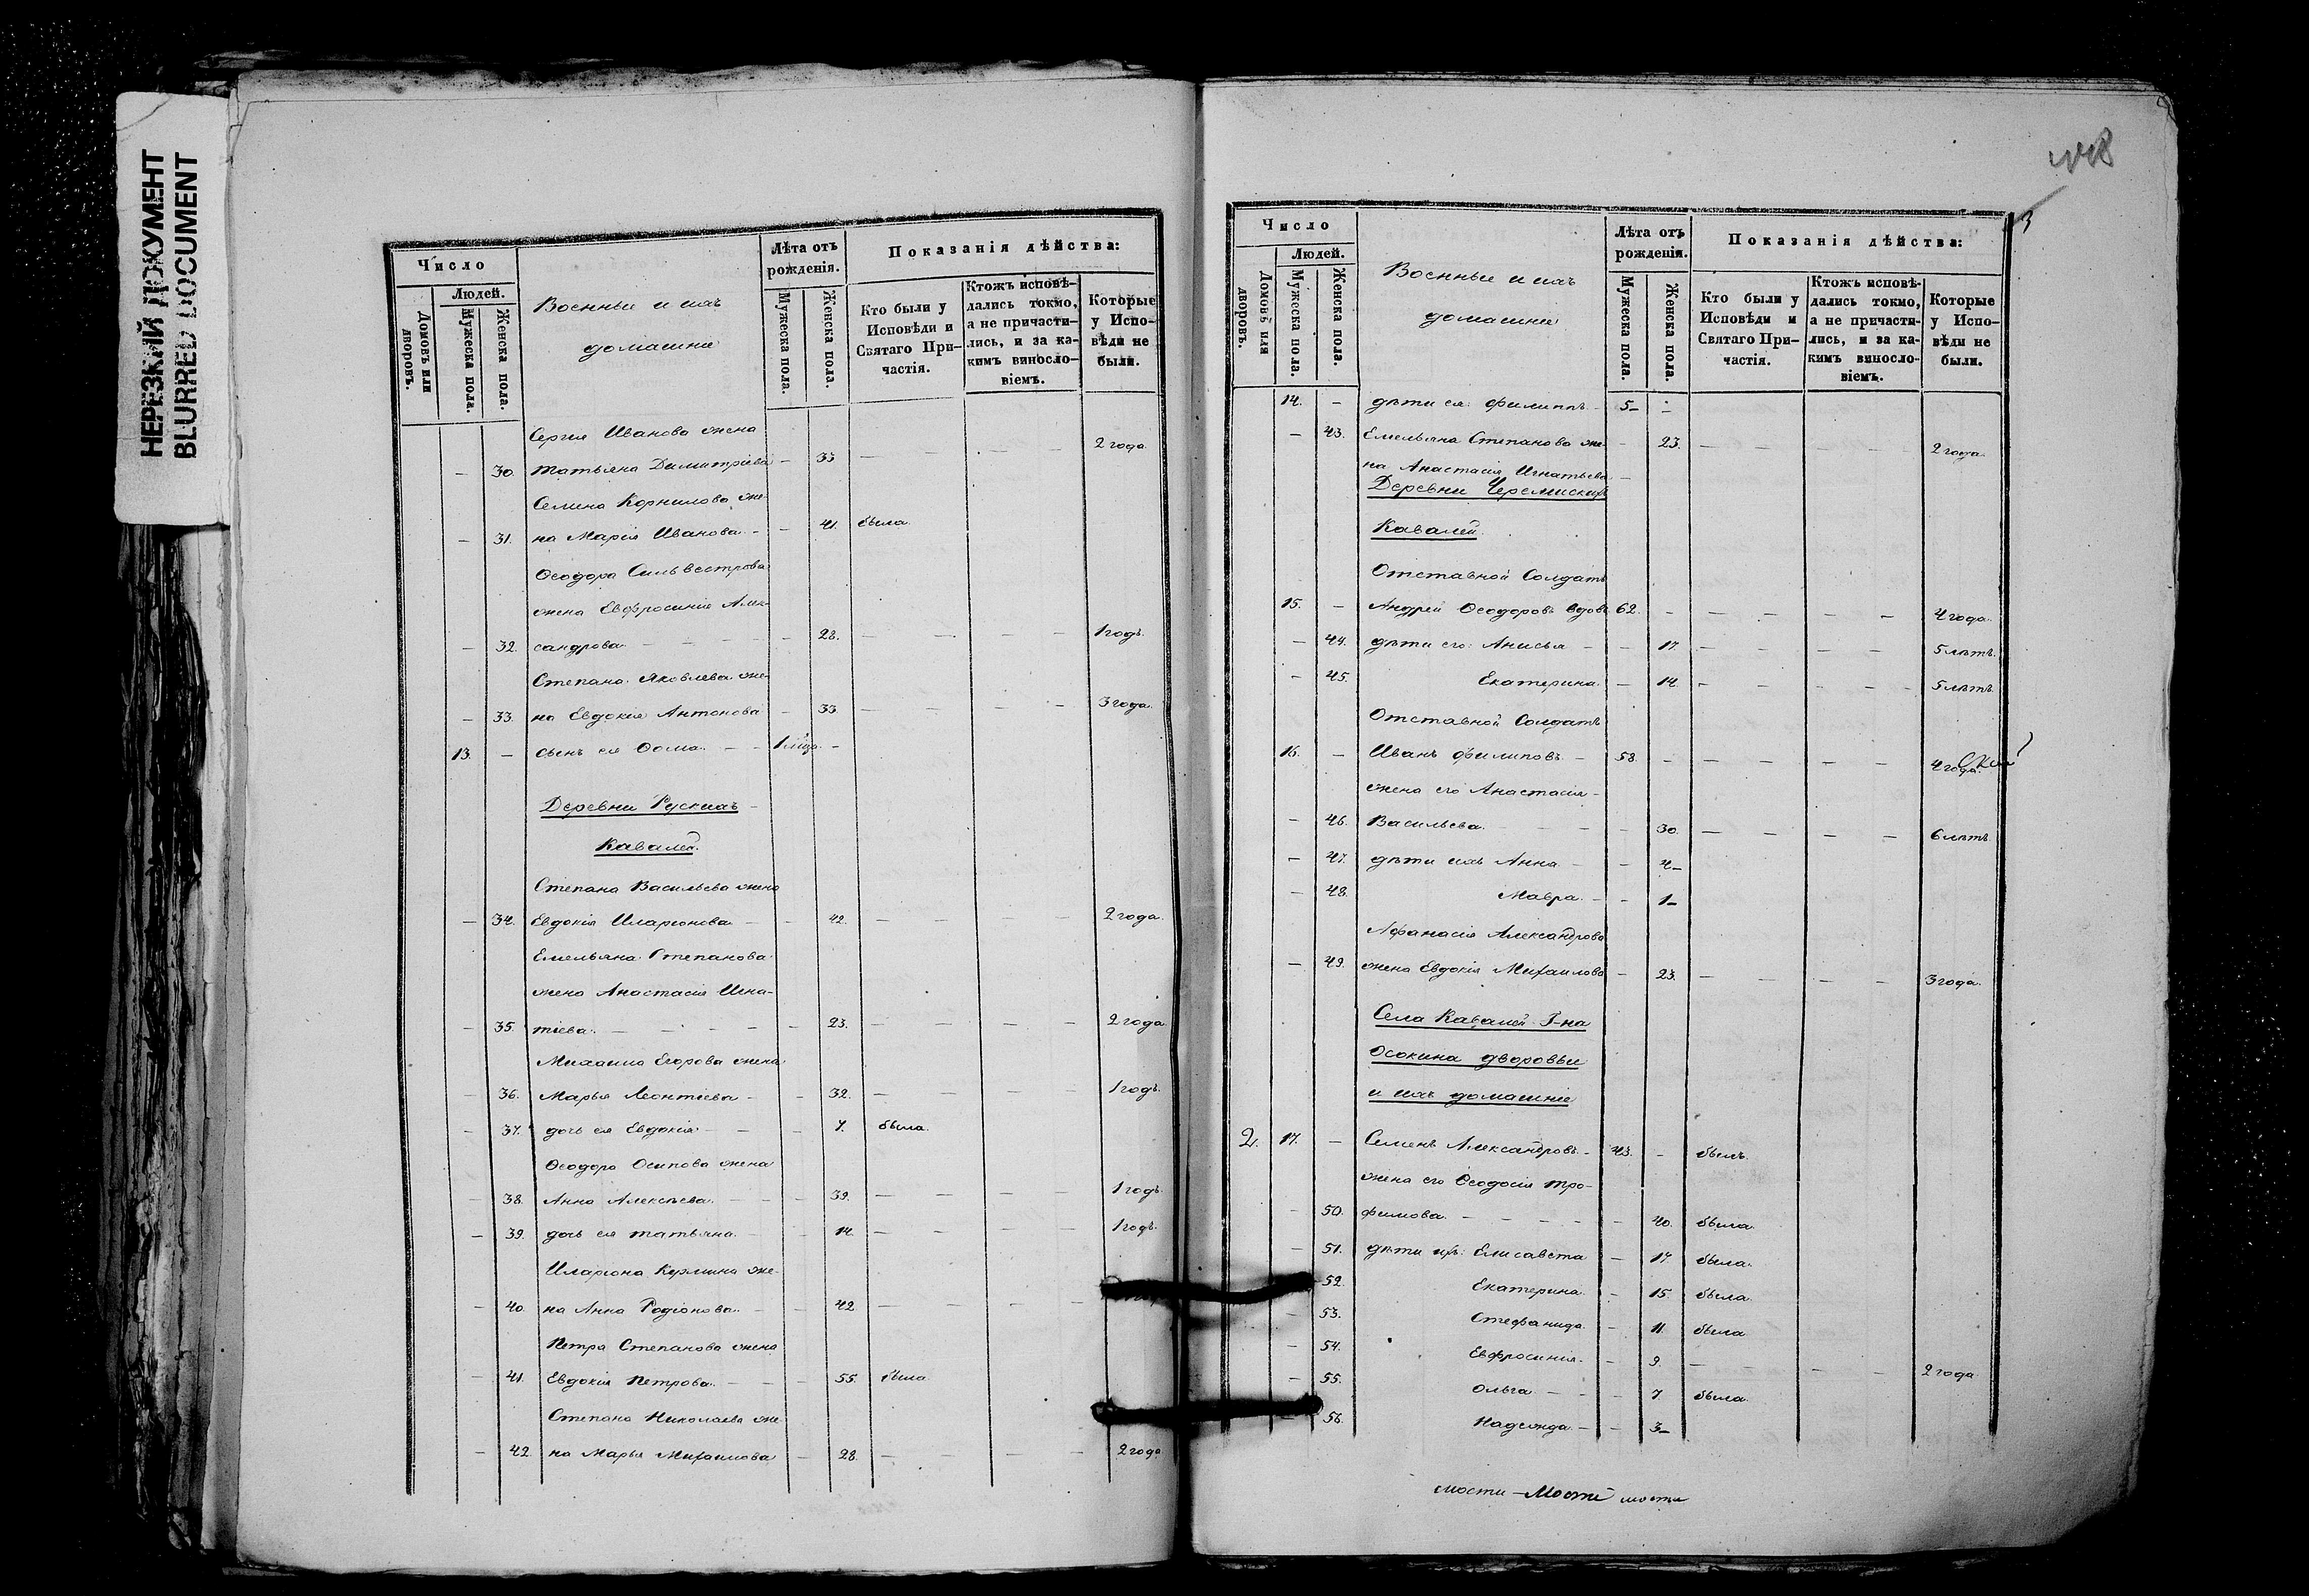 НЕРЕЗКИЙ ДОКУМЕНТ
BLURRED DOCUMENT
Число
Людей.
Домовъ или дворовъ.
Мужеска пола.
Женска пола.
Военные и ихъ
домашніе
Лѣта отъ рожденія.
Мужеска пола.
Женска пола.
Показанія дѣйства:
Кто были у Исповѣди и Святаго Причастія.
Ктожъ исповѣдались токмо, а не причастились, и за какимъ винословіемъ.
Которые у Исповѣди не были.
Сергія Иванова жена
— 30. Татьяна Димитріева — 33 — — — — 2 года.
Семина Корнилова же-
— 31. на Марія Иванова — — 41. была.
Ѳеодора Сильвестрова
жена Евфросинія Алек-
— 32. сандрова — — — — 28. — — — — 1 годъ.
Степана Яковлева же-
— 33. на Евдокія Антонова — 33. — — — — 3 года.
13. — сынъ ея Ѳома — — —
Деревни Рускихъ
Кавалей.
Степана Васильева жена
— 34. Евдокія Иларіонова — — 42. — — — 2 года.
Емельяна Степанова
жена Анастасія Игна-
— 35. тіева. — — — — — 23. — — — — 2 года
Михаила Егорова жена
— 36. Марья Леонтіева — — 32. — — — — 1 годъ.
— 37. дочь ея Евдокія — — — 7. была.
Ѳеодора Осипова жена
— 38. Анна Алексѣева. — — — 39. — — — — 1 годъ.
— 39. дочь ея Татьяна. — — 14. — — — — 1 годъ.
Иларіона Кузмина же-
— 40. на Анна Родіонова. — — 42 — — — —
Петра Степанова жена
— 41. Евдокія Петрова. — — — 55. была
Степана Николаева же-
— 42. на Марья Михаилова — 28. — — — 2 года
3
Число
Людей.
Домовъ или дворовъ.
Мужеска пола.
Женска пола.
Военные и ихъ
домашніе
Лѣта отъ рожденія.
Мужеска пола.
Женска пола.
Показанія дѣйства:
Кто были у Исповѣди и Святаго Причастія.
Ктожъ исповѣдались токмо, а не причастились, и за какимъ винословіемъ.
Которые у Исповѣди не были.
14. — дѣти ея: Филиппъ — 5 — —
— 43. Емельяна Степанова же- — 23. — — — — 2 года
на Анастасія Игнатьева —
Деревни Черемискихъ
Кавалей.
Отставной Солдатъ
15. — Андрей Ѳеодоровъ вдовъ 62. — — — — — 4 года.
— 44. дѣти его: Анисья — — 17. — — — — 5 лѣтъ.
— 45. Екатерина — 14. — — — — 5 лѣтъ.
Отставной Солдатъ
16. — Иванъ Филиповъ — 58. — — — — — 4 года.
жена его Анастасія —
— 46. Васильева. — — — — 30. — — — — 6 лѣтъ
— 47. дѣти ихъ Анна — — 4 —
— 48. Мавра. — — 1 —
Афанасія Александрова
— 49. жена Евдокія Михаилова — 23. — — — — 3 года.
Села Кавалей Г-на
Осокина дворовые
и ихъ домашніе
2. 17. — Семенъ Александровъ — 43. — былъ.
жена его Ѳеодосія Тро-
— 50. фимова. — — — — — 40. была.
— 51. дѣти ихъ: Елисавета — 17. была.
52. Екатерина — 15. была
— 53. Стефанида — 11. была
— 54. Евфросинія. — 9. — — — — 2 года
— 55. Ольга — — — 7 была
— 56. Надежда — — 3 —
мости — Мости мости